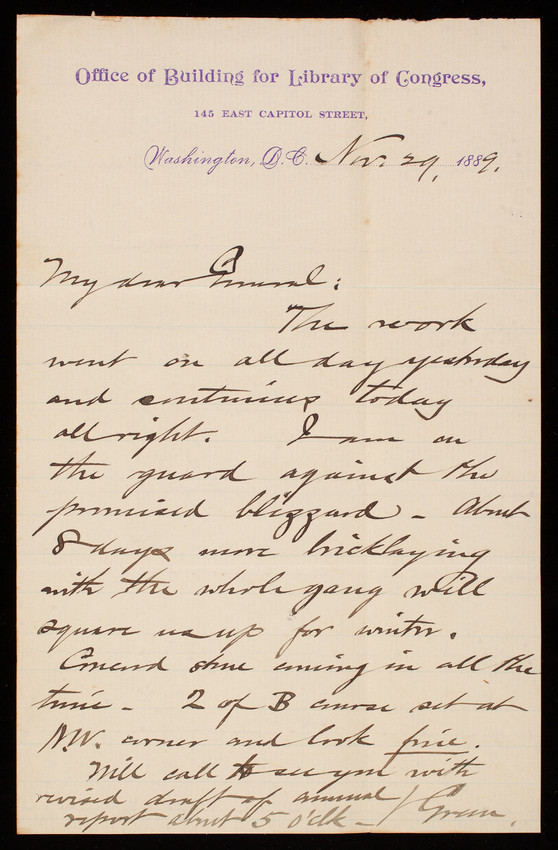 Office of Building for Library of Congress,
145 EAST CAPITOL STREET,
Washington, D.C. Nov. 29, 1889.
My dear General:
The work
went on all day yesterday
and continues today
all right. I am on
the guard against the
promised blizzard - About
8 days more bricklaying
with the whole gang will
square us up for winter.
Concord stone coming in all the
time - 2 of B course set at
N.W. corner and look fine.
Will call to see you with
revised draft of annual
report about 5 o'clk - / Green.